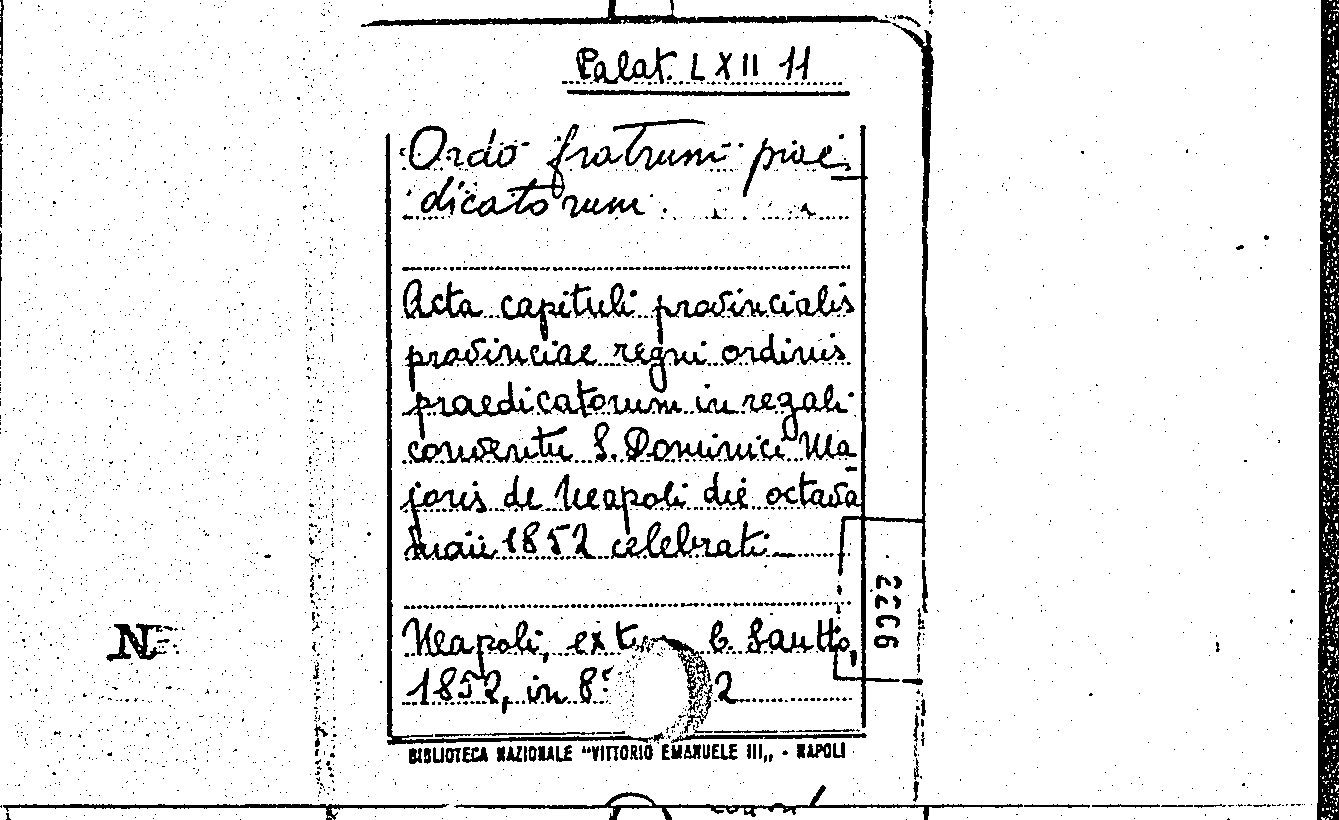 Palat. LXII 11
Ordo fratrum prae
dicatorum
Acta capituli provincialis
provinciae regni ordinis
praedicatorum in regali
conventu S. Dominici Ma
joris de Neapoli die octava
maii 1852 celebrati
Neapoli, ex C. Sautto,
1852, in 8° 2
2206
N
BIBLIOTECA NAZIONALE "VITTORIO EMANUELE III„ - NAPOLI